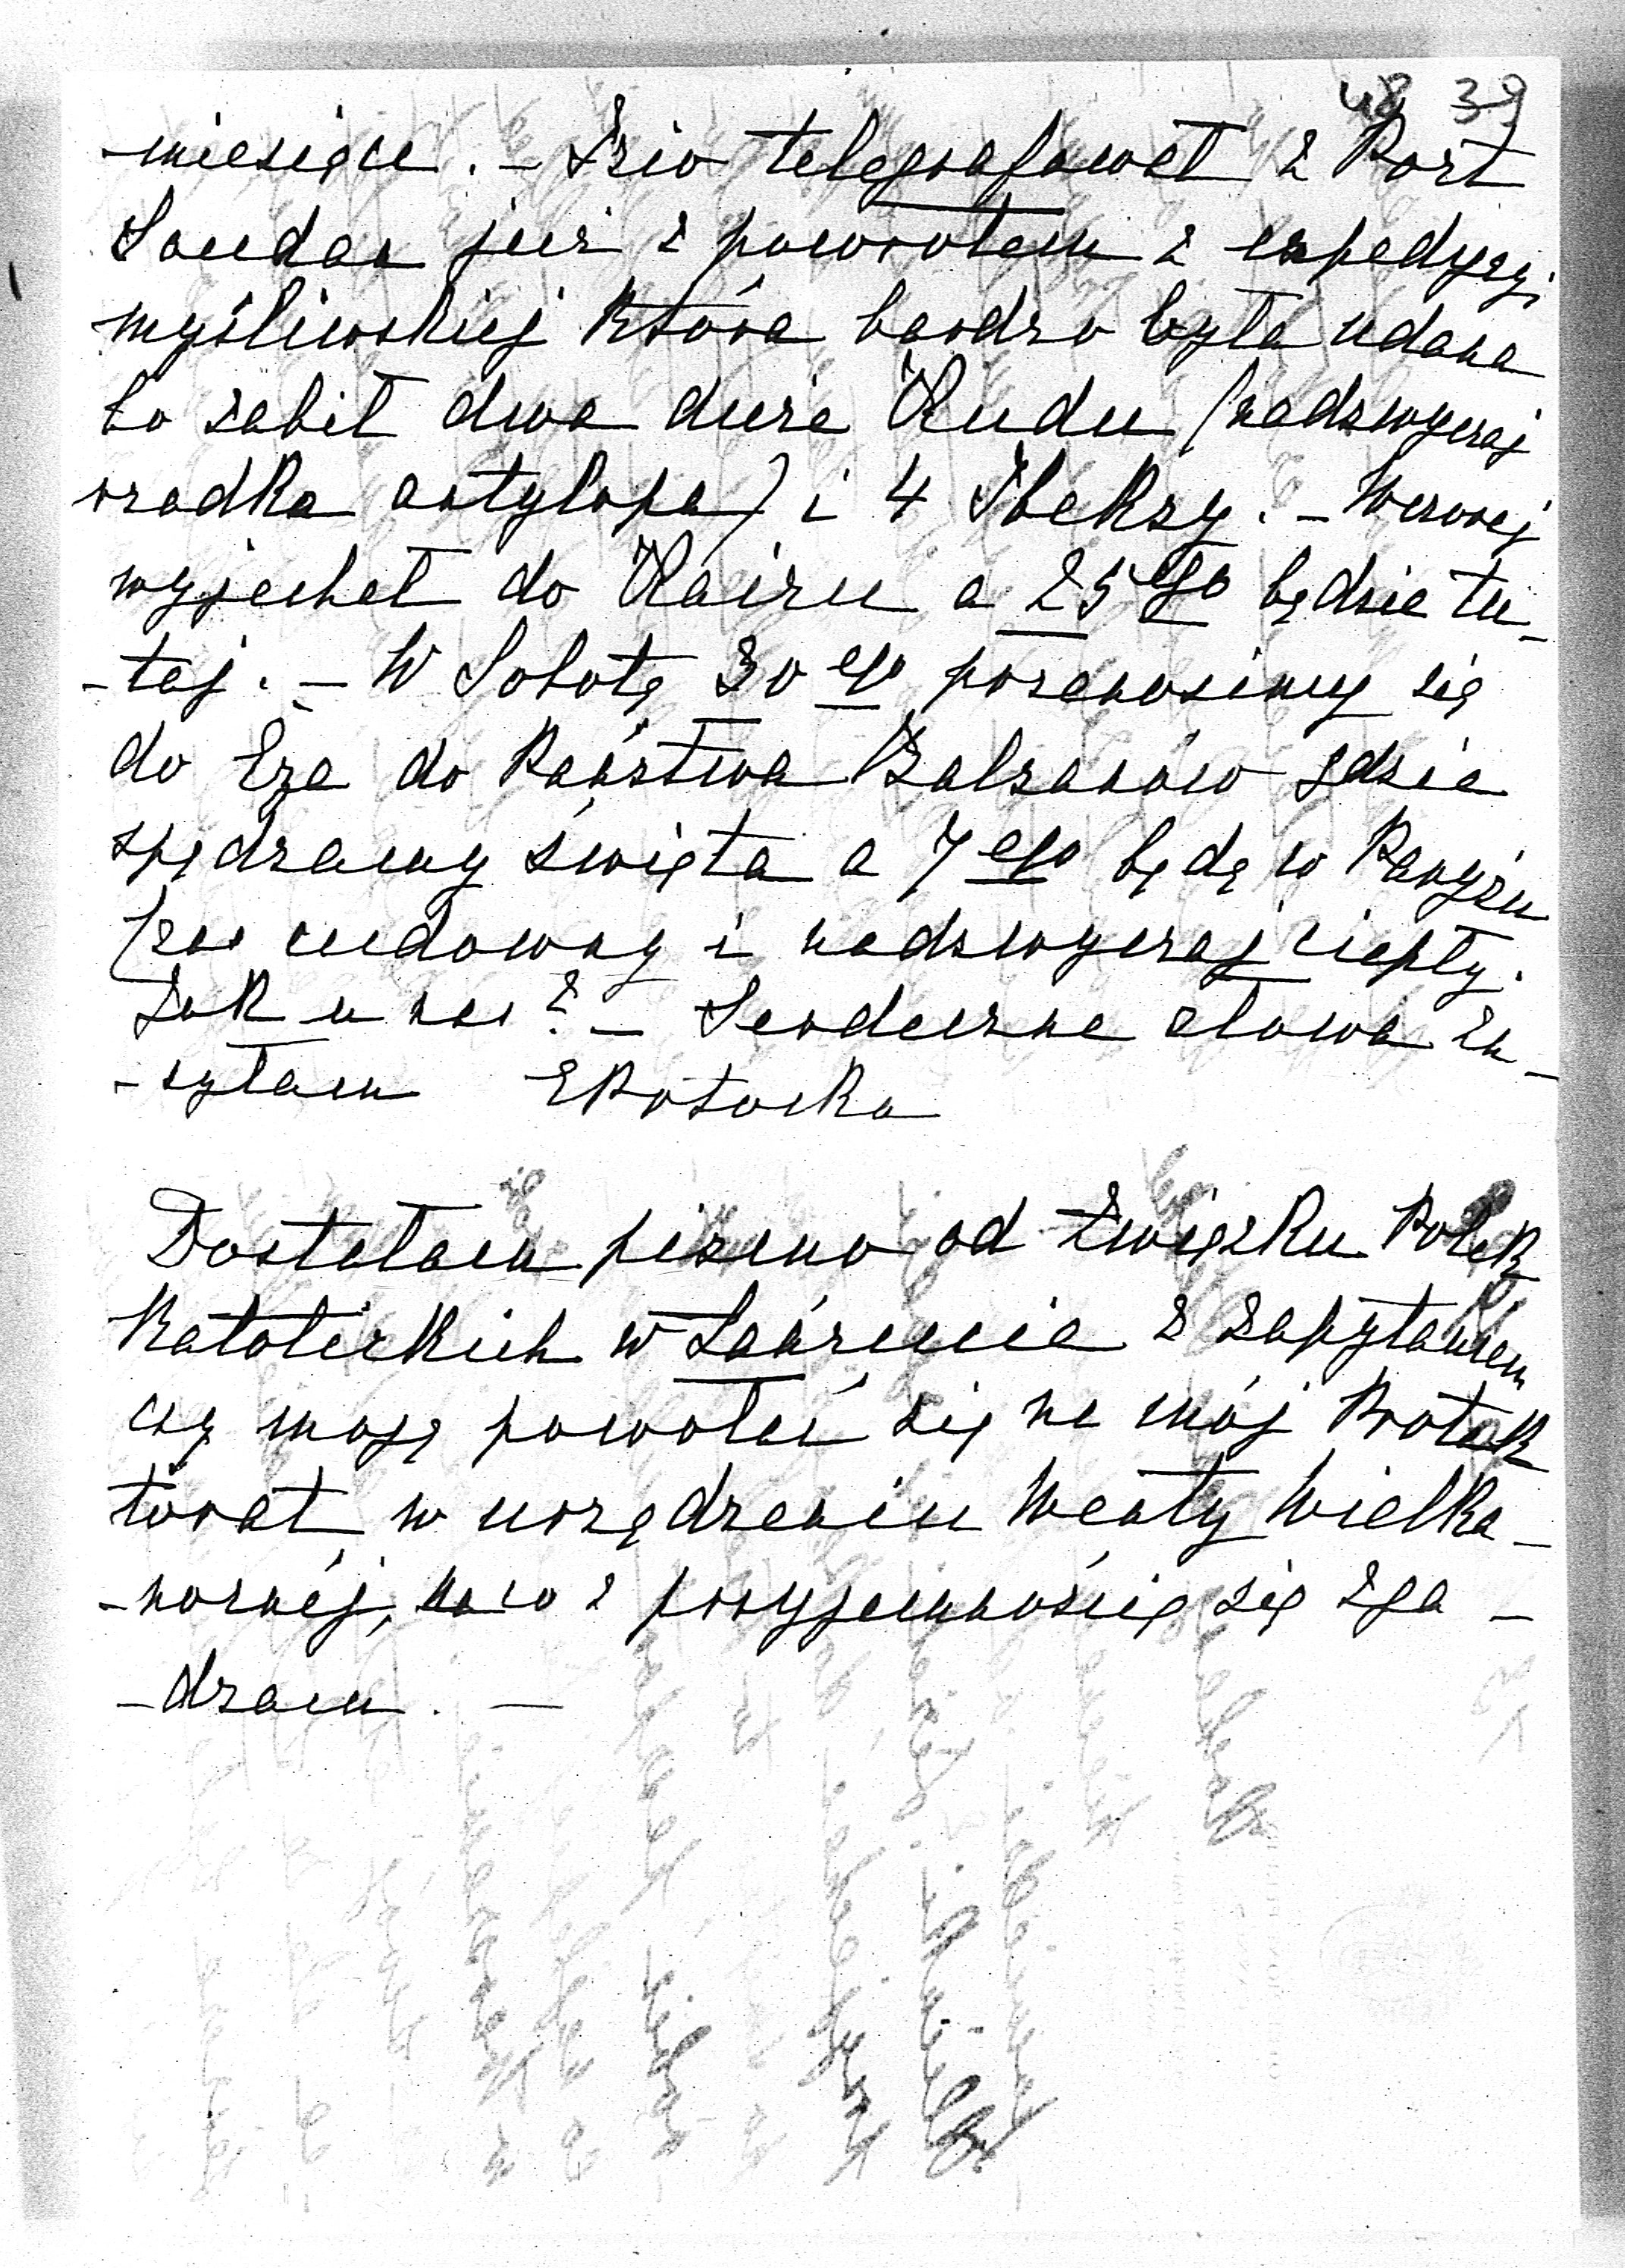 48 39
-miesiące. - Dzio telegrafował z Port
Soudan już z powrotem z expedycyi
myśliwskiej która bardzo była udana
bo zabił dwa duże Kudu (nadzwyczaj
rzadka antylopa) i 4 Ibeksy. - Wczoraj
wyjechał do Kairu a 25go będzie tu-
-taj. - W Sobotę 30ego przenosimy się
do Eze do Państwa Balzanów gdzie
spędzamy święta a 7ego będę w Paryżu
Czas cudowny i nadzwyczaj ciepły.
Jak u nas? - Serdeczne słowa za-
-syłam EPotocka
Dostałam pismo od Związku Polek
Katolickich w Łańcucie z zapytaniem
czy mogą powołać się na mój Protek
torat w urządzeniu Wenty Wielka-
-nocnéj, na co z przyjemnością się zga-
-dzam. -